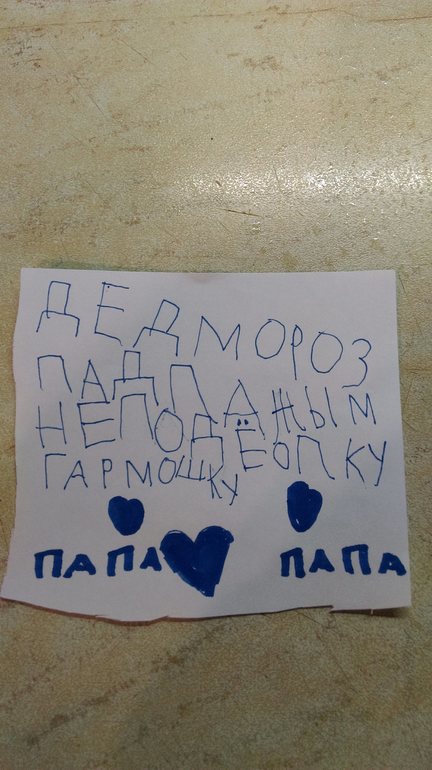 ДЕД МОРОЗ
ПАДЛАЖЫМ
НЕПОДЁОЛКУ
ГАРМОШКУ
ПАПА ПАПА